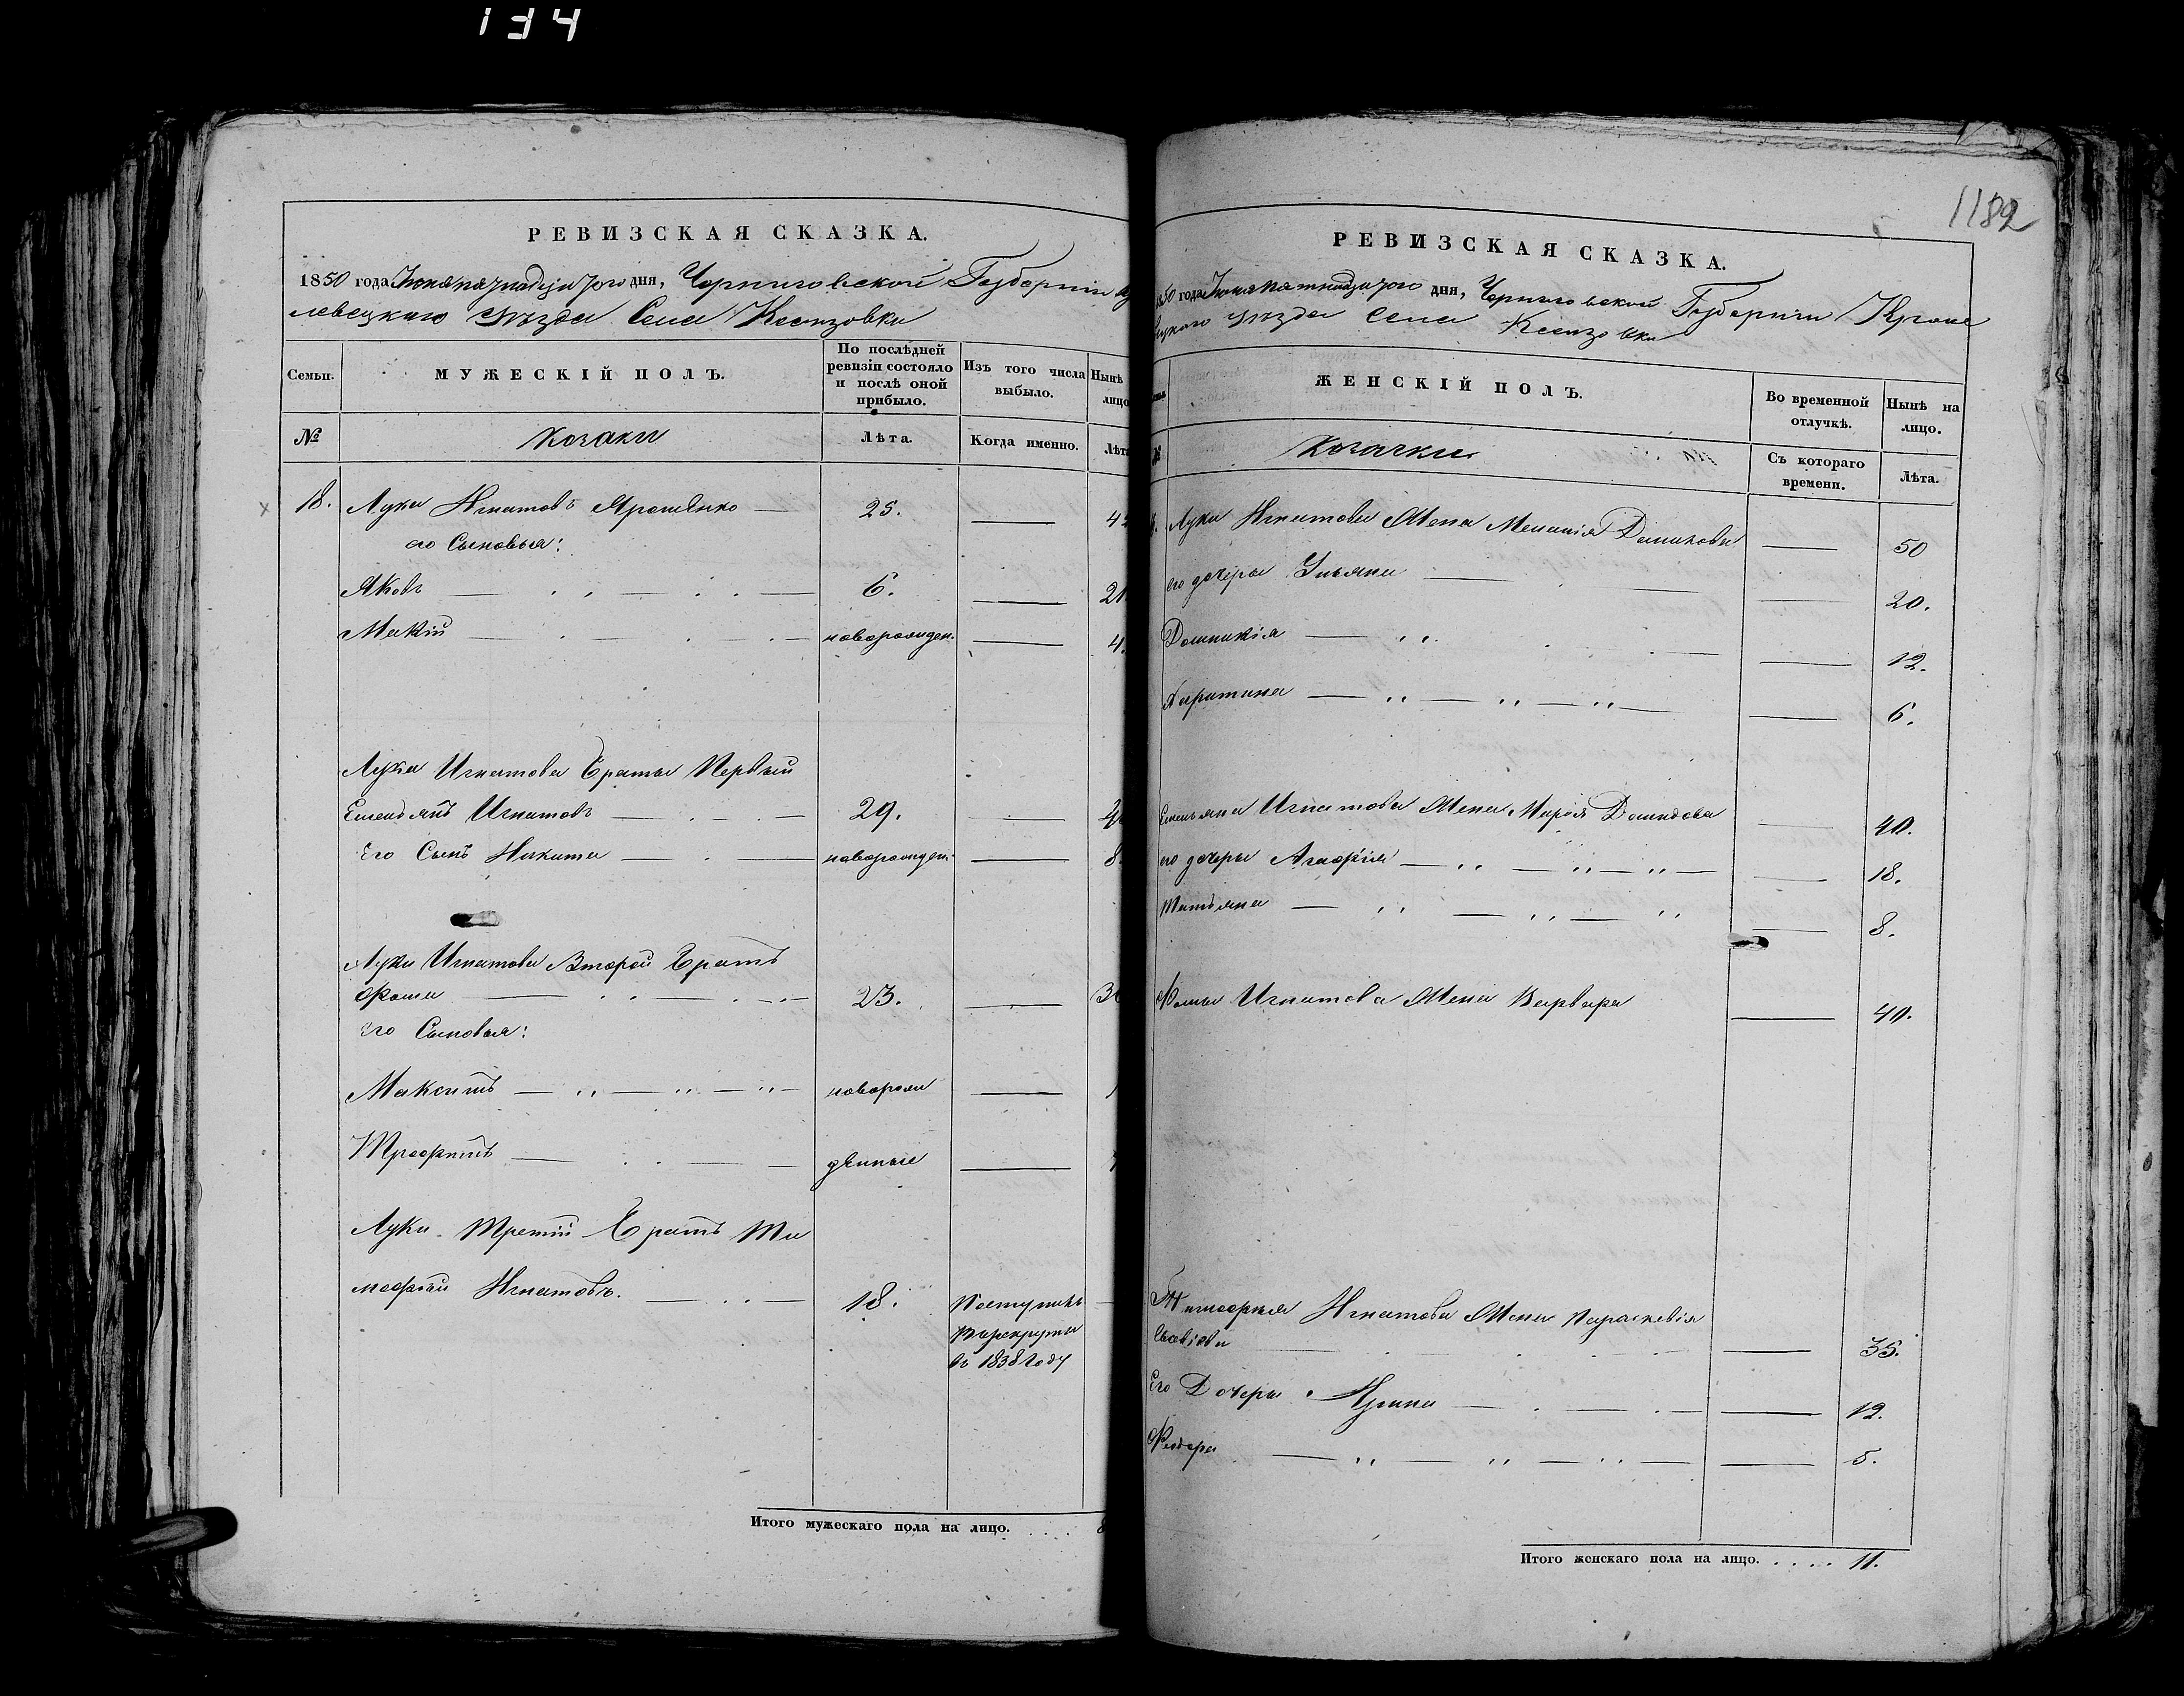 134
РЕВИЗСКАЯ СКАЗКА.
1850 года Июня пятнадцатого дня, Черниговской Губернии
левецкаго уезда Села Ксензовки
Семьи.
МУЖЕСКІЙ ПОЛЪ.
По послѣдней ревизіи состояло и послѣ оной прибыло.
Изъ того числа выбыло.
Нынѣ лицо
№
Козаки
Лѣта.
Когда именно.
Лѣта
18. Лука Игнатовъ 25.
его Сыновья:
Яковъ 6. 21
Макій новорожден. 4.
Луки Игнатова Братъ Первый
Емельянъ Игнатовъ 29.
Его Сынъ Никита новорожден. 8
Луки Игнатова Второй Братъ
Фома 23.
Его Сыновья:
Максимъ новорож
Трофимъ денные
Луки Третій Братъ Ти
мофей Игнатовъ. 18. Поступилъ
в рекруты
въ 1838 году
Итого мужескаго пола на лицо. . . . . 8
1182
РЕВИЗСКАЯ СКАЗКА.
1850 года Июня пятнадцатого дня, Черниговской Губернии Кроле
вецкаго уезда Села Ксензовки
ЖЕНСКІЙ ПОЛЪ.
Во временной отлучкѣ.
Нынѣ на лицо.
№
Козачки
Съ котораго времени.
Лѣта.
Луки Игнатова Жена Меланія 50
его дочери Ульяна 20.
Домникія 12.
Харитина 6.
Емельяна Игнатова Жена Марія 40.
его дочери Агафія 18.
Татьяна 8.
Фомы Игнатова Жена Варвара 40.
Тимофея Игнатова Жена Параскевія
35.
Его Дочери 12.
Феодора 5.
Итого женскаго пола на лицо. . . . . 11.